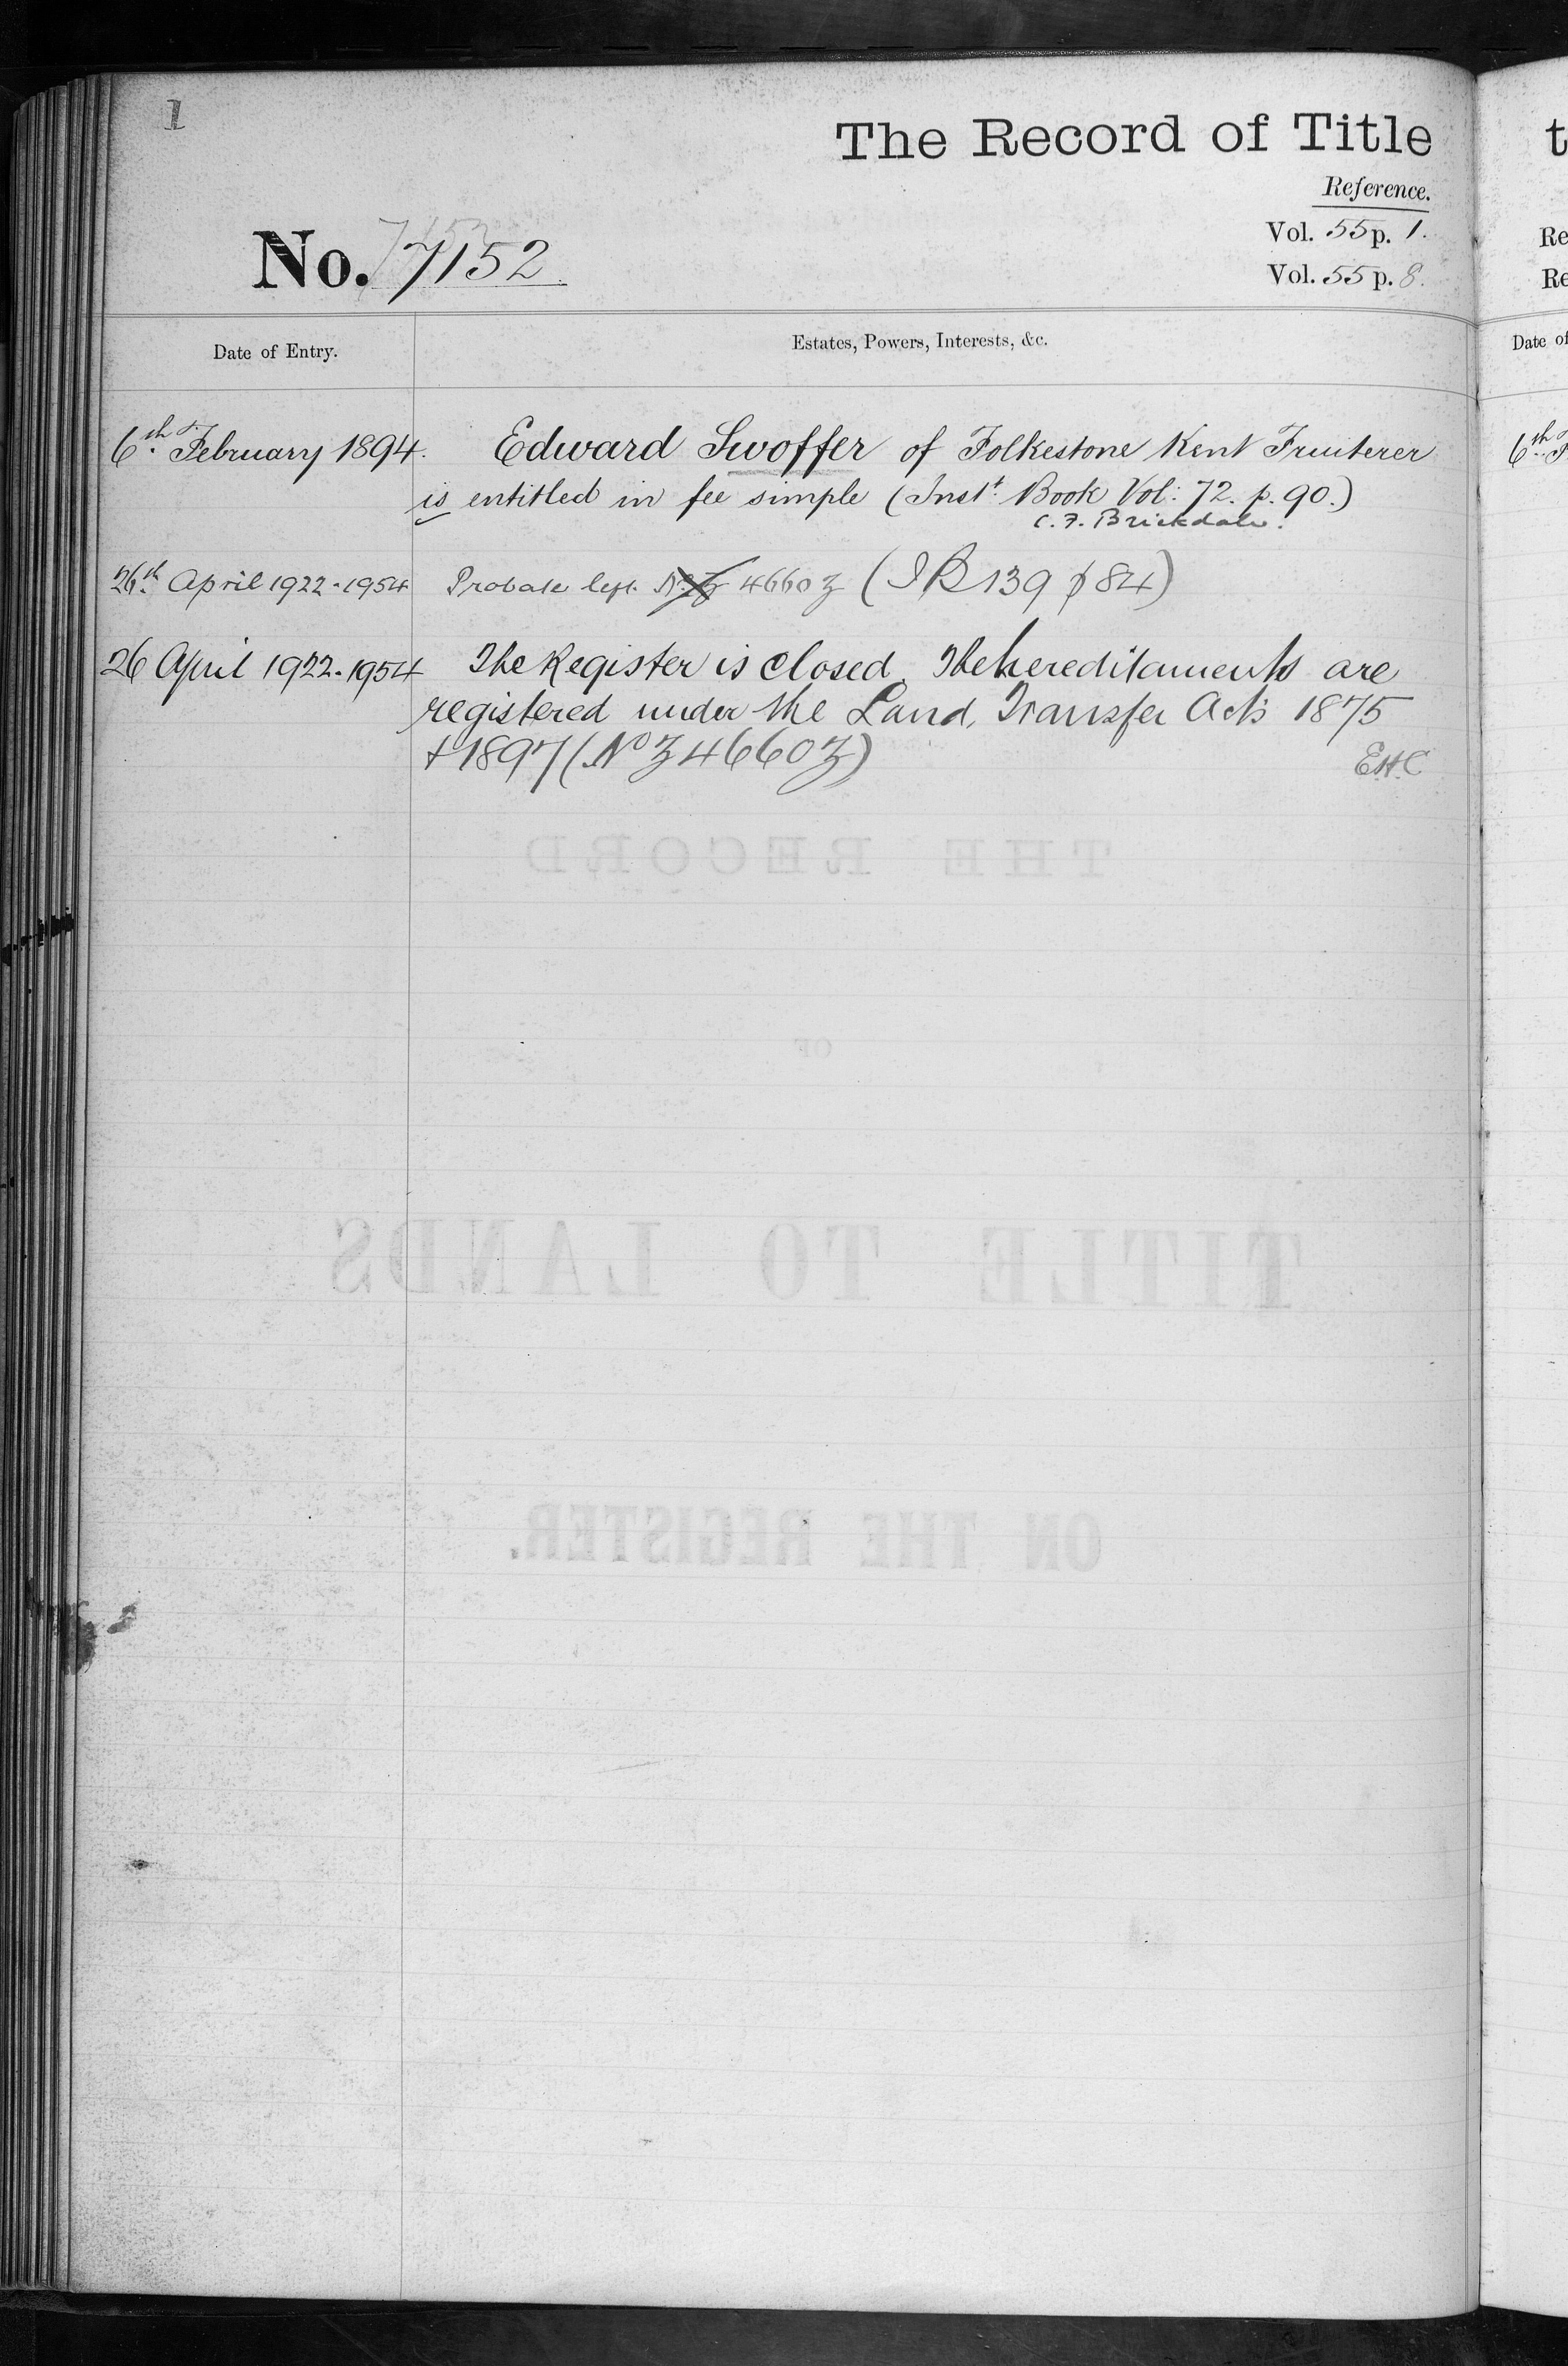 1
The Record of Title
Reference.
No. 7152
Vol. 55 p. 1.
Vol. 55 p. 8.
Date of Entry.
Estates, Powers, Interests, &c.
6th February 1894.
Edward Swoffer of Folkestone Kent Fruiterer
is entitled in fee simple (Inst. Book Vol: 72. p. 90.)
C. F. Brickdale.
26th April 1922 - 1954
Probate left 4660 Z (I B 139 p 84)
26 April 1922 - 1954
The Register is closed. The hereditaments are
registered under the Land Transfer Acts 1875
+ 1897 (No Z 4660 Z)
E.H.C
THE RECORD
OF
TITLE TO LANDS
ON THE REGISTER.
t
Re
Re
Date of
6th F